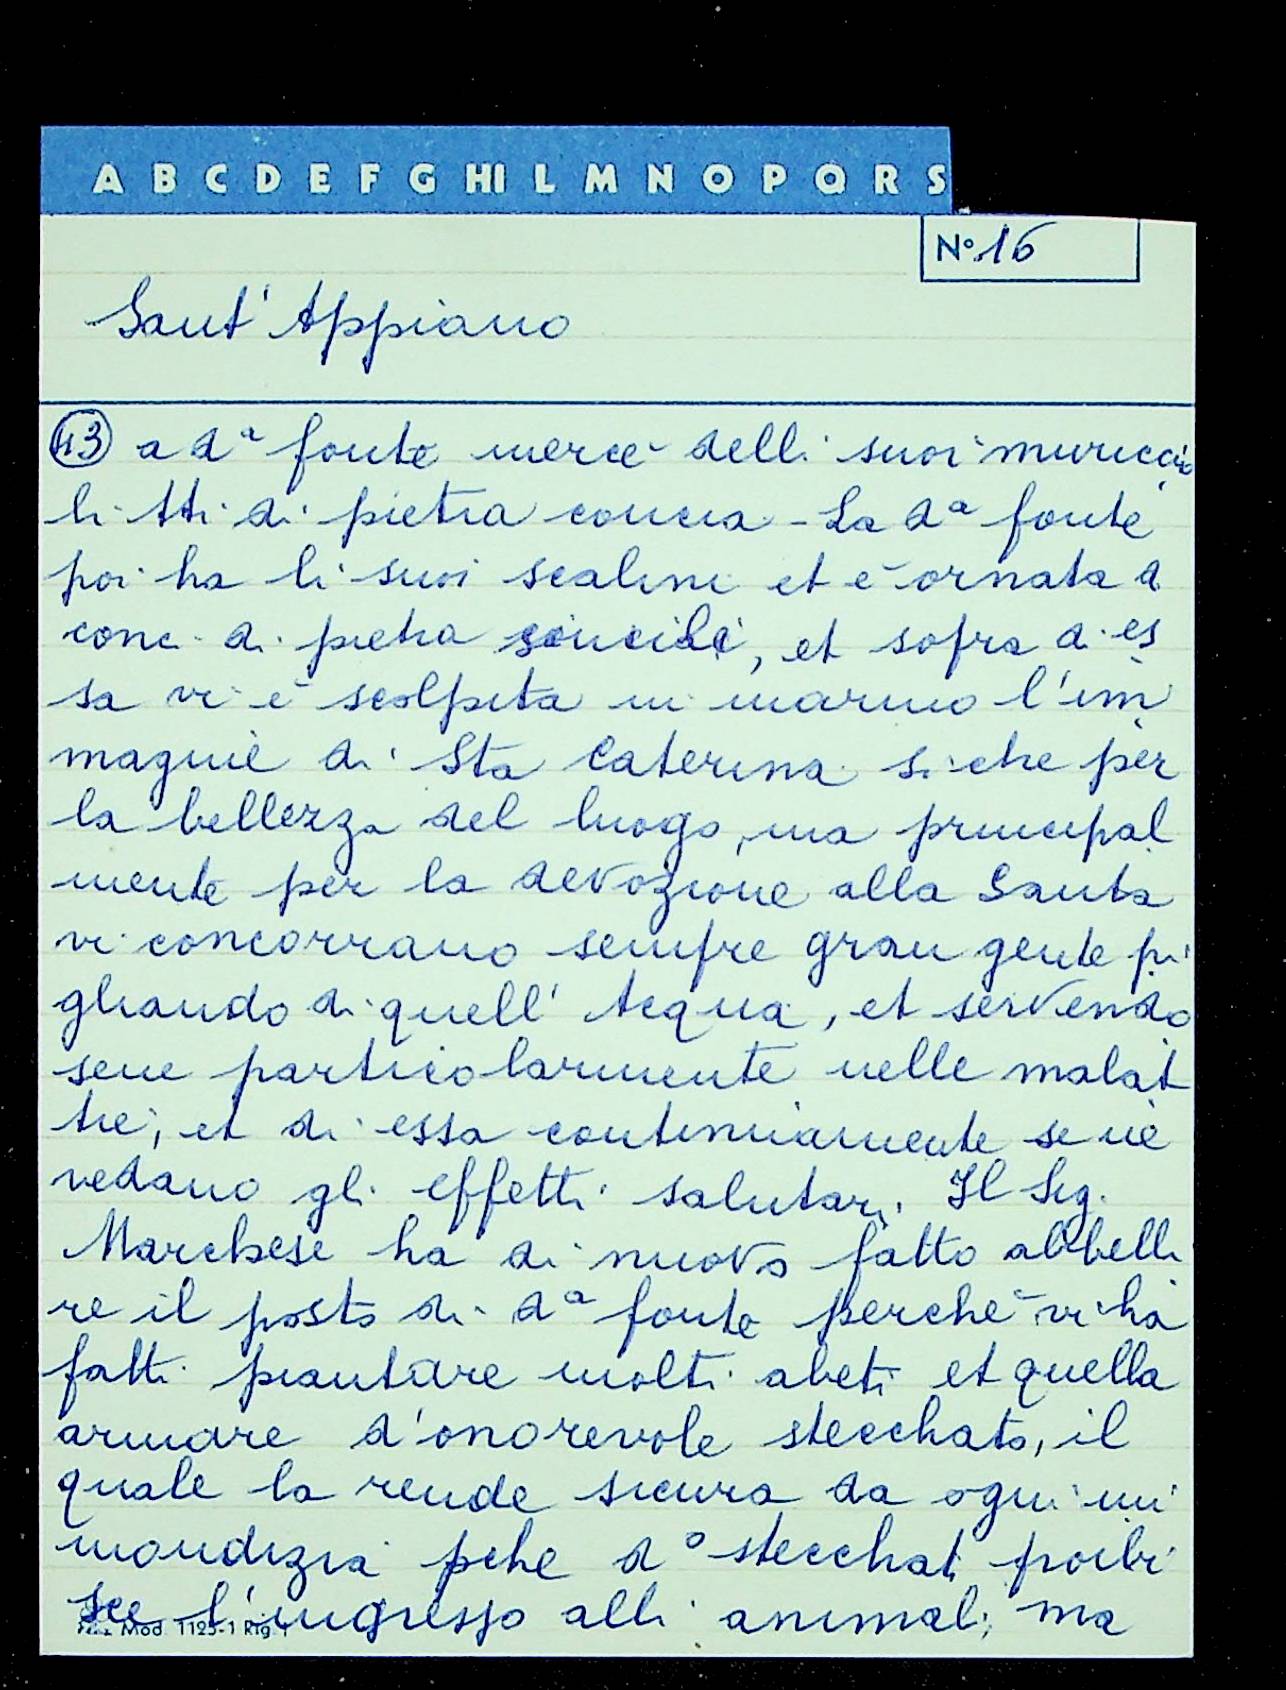 A B C D E F G HI L M N O P Q R S
N° 16
Sant' Appiano
43 a dª fonte mercè delli suoi muriccio
li tti di pietra concia - La dª fonte
poi ha li suoi scalini et è ornata d
conci di pietra, et sopra di es
sa vi è scolpita in marmo l'im
magine di Sta Caterina siche per
la bellezza del luogo, ma principal
mente per la devozione alla Santa
vi concorrano sempre gran gente pi
gliando di quell' Acqua, et servendo
sene particolarmente nelle malat
tie, et di essa continuamente se ne
vedano gli effetti salutari. Il Sig.
Marchese ha di nuovo fatto abbelli
re il posto di dª fonte perchè vi ha
fatti piantare molti abeti et quella
armare d'onorevole stecchato, il
quale la rende sicura da ogni im
mondizia pche d° stecchat proibi
sce l'ingresso alli animali; ma
Mod. 1125-1 Rig. 1